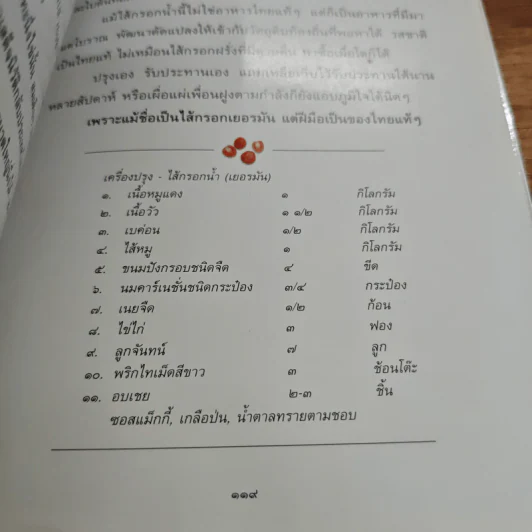 แม้ไส้กรอกน้ำนี้ไม่ใช่อาหารไทยแท้ๆ แต่ก็เป็นอาหารที่มีมา
แต่โบราณ พัฒนาดัดแปลงให้เข้ากับวัตถุดิบท้องถิ่นที่พอหาได้ รสชาติ
เป็นไทยแท้ ไม่เหมือนไส้กรอกฝรั่งที่มีดาษดื่น หาซื้อเมื่อใดก็ได้
ปรุงเอง รับประทานเอง แถมเหลือเก็บไว้รับประทานได้นาน
หลายสัปดาห์ หรือเผื่อแผ่เพื่อนฝูงตามกำลังก็ยังแอบภูมิใจได้นิดๆ
เพราะแม้ชื่อเป็นไส้กรอกเยอรมัน แต่ฝีมือเป็นของไทยแท้ๆ
เครื่องปรุง - ไส้กรอกน้ำ (เยอรมัน)
๑. เนื้อหมูแดง ๑ กิโลกรัม
๒. เนื้อวัว ๑ ๑/๒ กิโลกรัม
๓. เบค่อน ๑/๒ กิโลกรัม
๔. ไส้หมู ๑ กิโลกรัม
๕. ขนมปังกรอบชนิดจืด ๔ ขีด
๖. นมคาร์เนชั่นชนิดกระป๋อง ๓/๔ กระป๋อง
๗. เนยจืด ๑/๒ ก้อน
๘. ไข่ไก่ ๓ ฟอง
๙. ลูกจันทน์ ๗ ลูก
๑๐. พริกไทเม็ดสีขาว ๓ ช้อนโต๊ะ
๑๑. อบเชย ๒-๓ ชิ้น
ซอสแม็กกี้, เกลือป่น, น้ำตาลทรายตามชอบ
๑๑๙